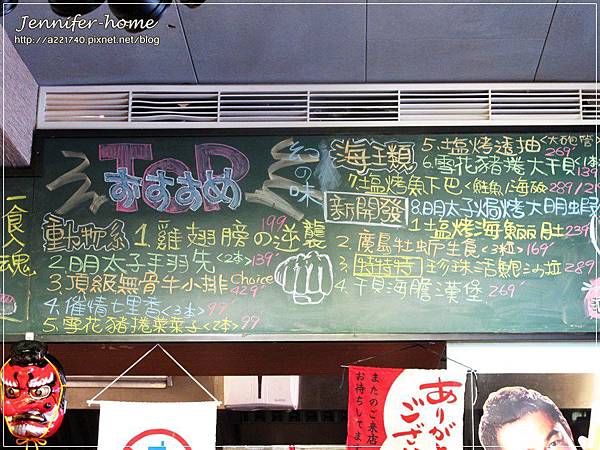 Jennifer-home
http://a221740.pixnet.net/blog
一食入魂
TOP
おすすめ
幻の味
動物系
1.雞翅膀の逆襲 199
2.明太子手羽先<2本>139
3.頂級無骨牛小排Choice 429
4.催情七里香<3本>99
5.雪花豬捲菜菜子<2本>99
海王類
5.塩烤透抽 269
6.雪花豬捲大干貝 139
7.塩烤魚下巴<鮭魚/海鱺 289/
8.明太子焗烤大明蝦
新開發
1.塩烤海鱺肚 239
2.廣島牡蠣生食<3粒>169
3.特特特珍珠活鮑沙拉 289
4.干貝海膽漢堡 269
またのご来店
お待ちしてま
ありが
ござ